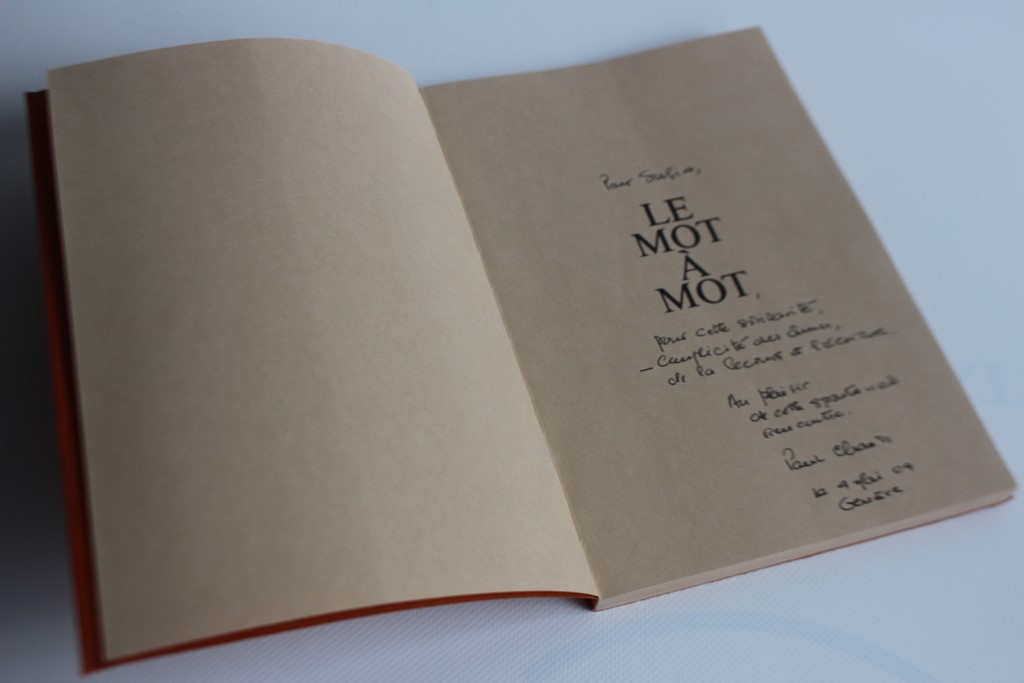 Pour
LE
MOT
À
MOT,
pour cette
– complicité des
de la lecture et l'écriture.
Au plaisir
de cette spontanée
rencontre.
Paul
le 4 mai 04
Genève